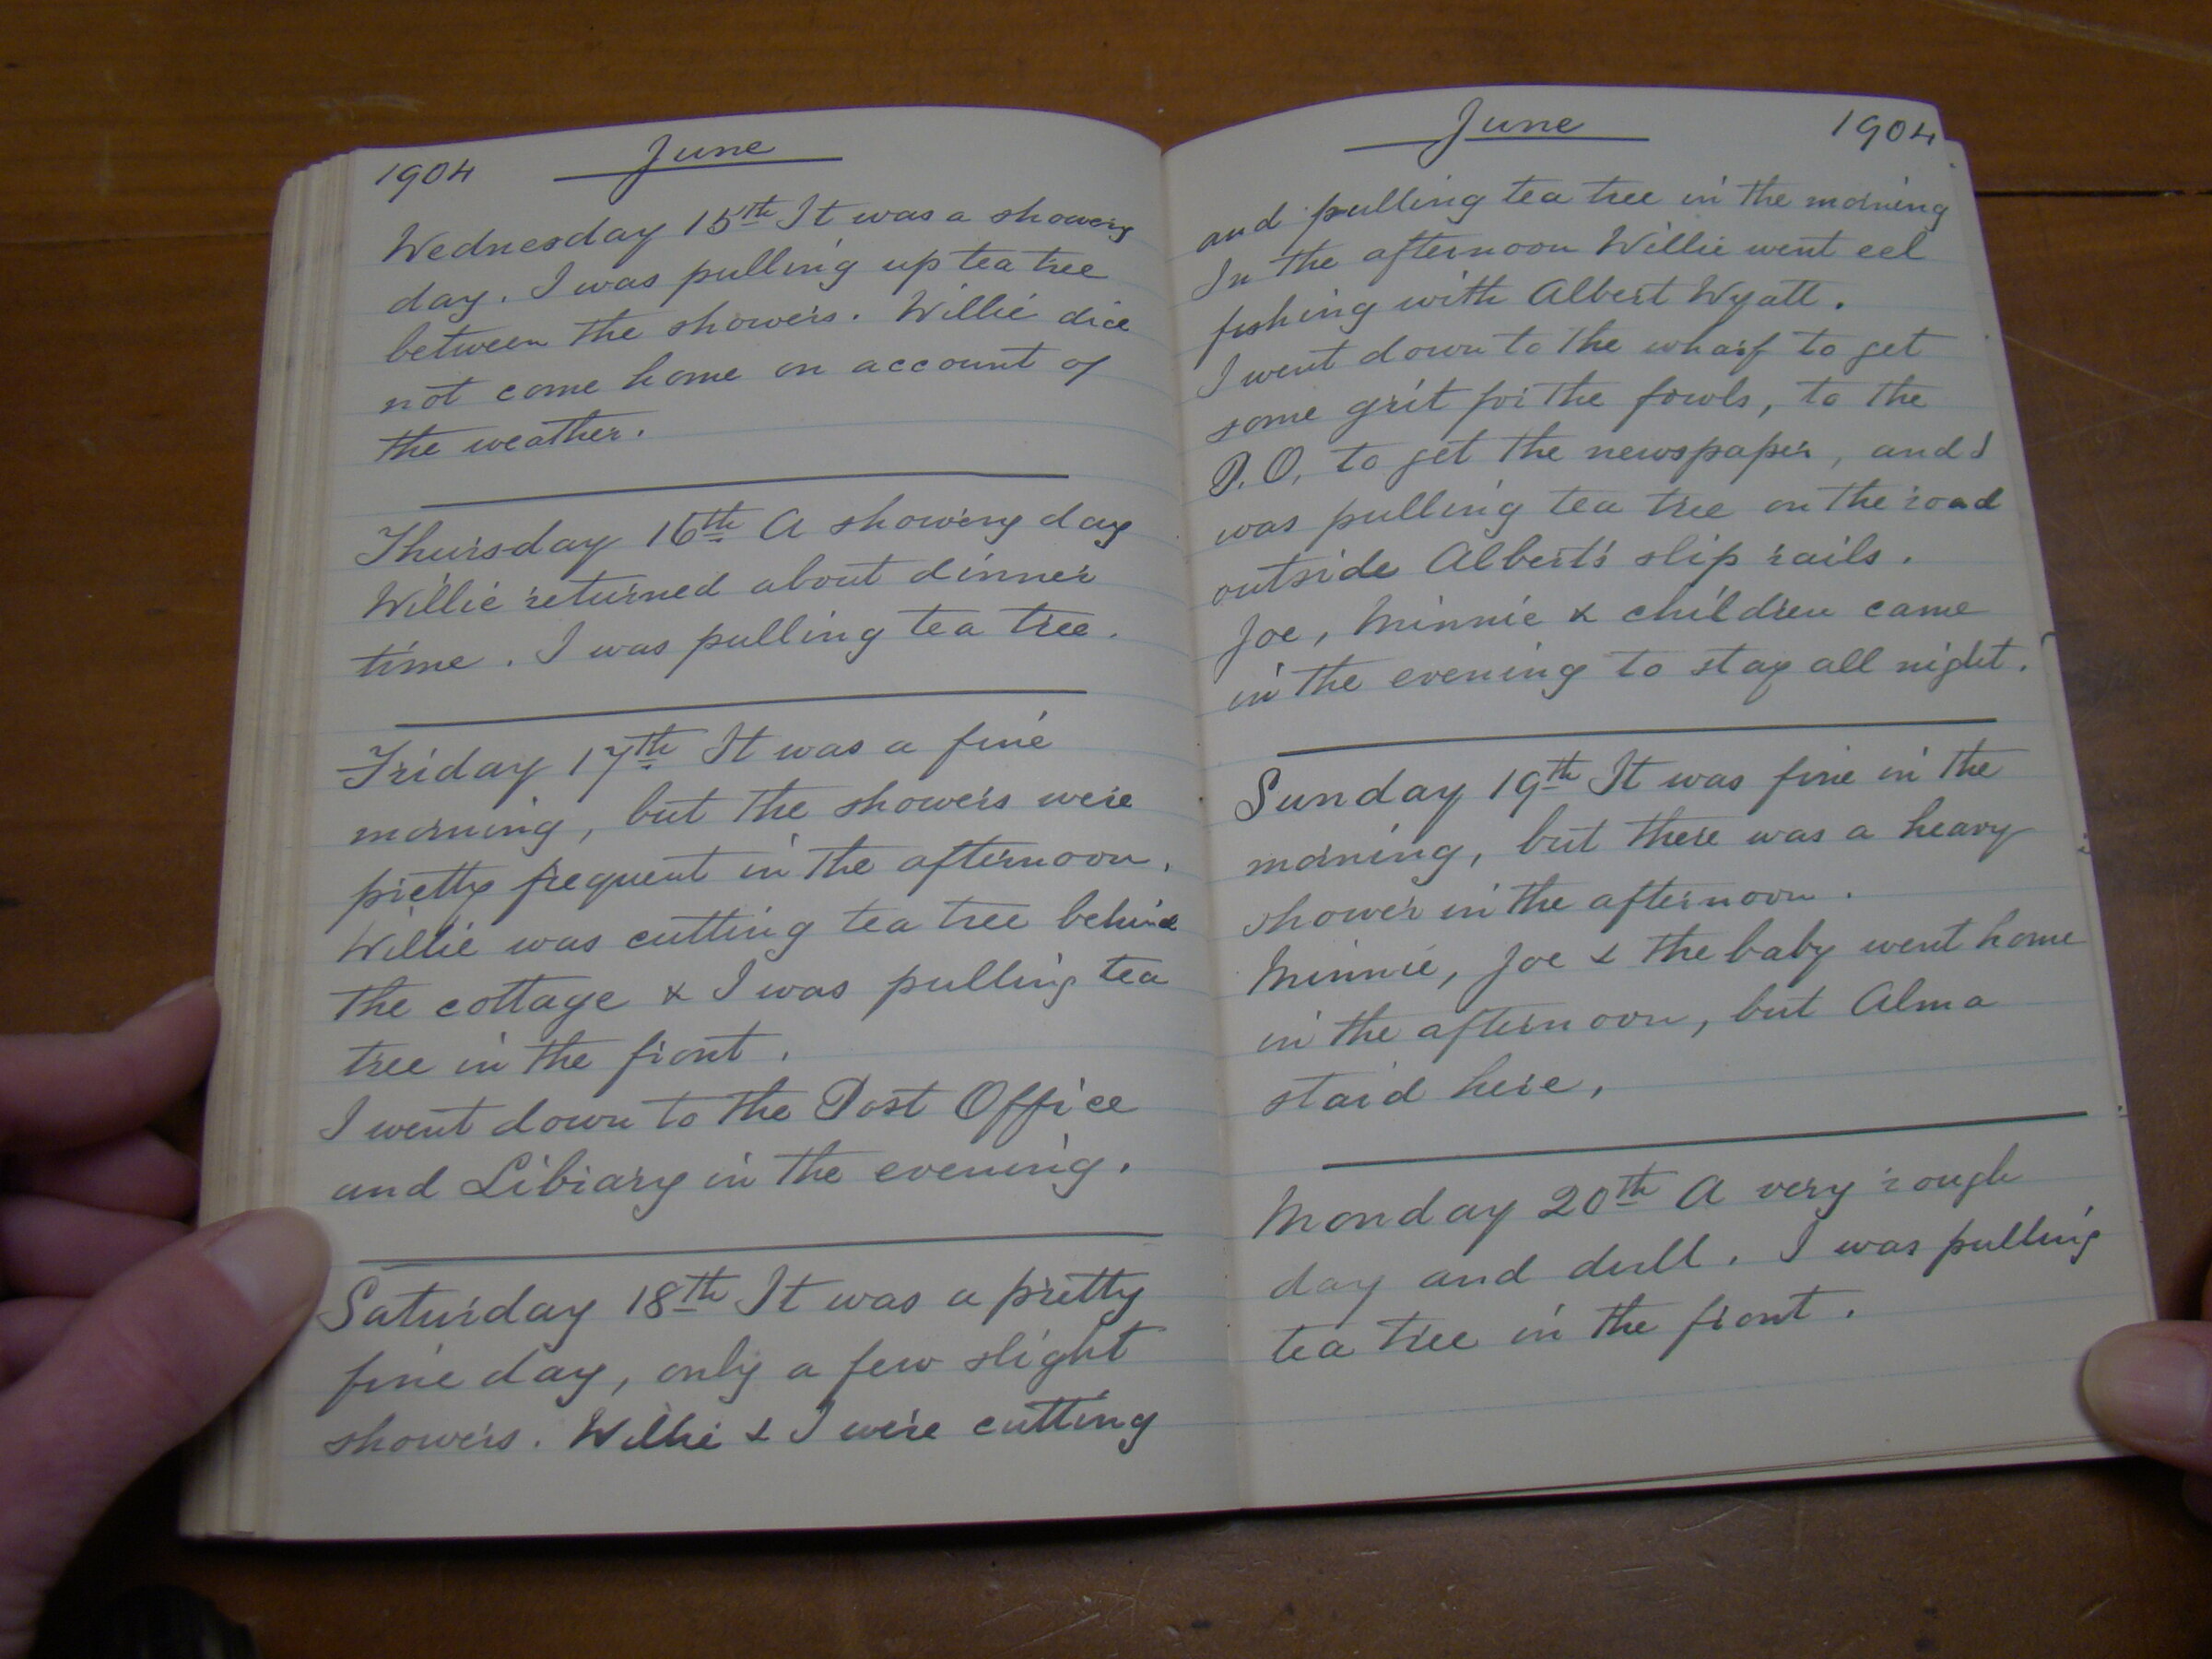 1904 June
Wednesday 15th It was a showery
day. I was pulling up tea tree
between the showers. Willie did
not come home on account of
the weather.
Thursday 16th A showery day
Willie returned about dinner
time. I was pulling tea tree.
Friday 17th It was a fine
morning, but the showers were
pretty frequent in the afternoon.
Willie was cutting tea tree behind
the cottage & I was pulling tea
tree in the front.
I went down to the Post Office
and Library in the evening.
Saturday 18th It was a pretty
fine day, only a few slight
showers. Willie & I were cutting
June 1904
and pulling tea tree in the morning
In the afternoon Willie went eel
fishing with Albert Wyatt.
I went down to the wharf to get
some grit for the fowls, to the
P.O, to get the newspaper, and I
was pulling tea tree on the road
outside Albert's slip rails.
Joe, Minnie & children came
in the evening to stay all night.
Sunday 19th It was fine in the
morning, but there was a heavy
shower in the afternoon.
Minnie, Joe & the baby went home
in the afternoon, but Alma
staid here,
Monday 20th A very rough
day and dull. I was pulling
tea tree in the front.